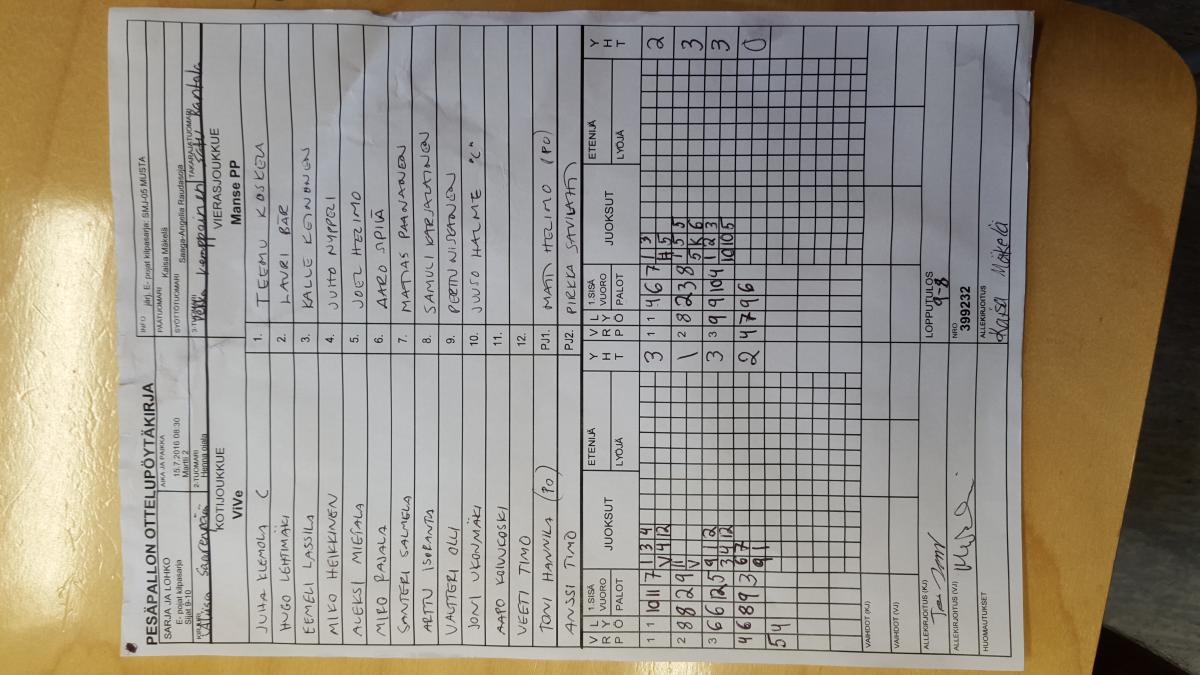 PESÄPALLON OTTELUPÖYTÄKIRJA
SARJA JA LOHKO
E- pojat kilpasarja
Sijat 9-10
AIKA JA PAIKKA
15.7.2016 08:30
Martti 2
INFO järj. E- pojat kilpasarja: SMJ-05 MUSTA
PÄÄTUOMARI Kaisa Mäkelä
SYÖTTÖTUOMARI Saaga-Angelia Raudasoja
KIRJURI
Saarenpää
2-TUOMARI
Henna ojala
3-TUOMARI
Pekka Kemppainen
TAKARAJATUOMARI
Satu Rantala
KOTIJOUKKUE
ViVe
VIERASJOUKKUE
Manse PP
JUHA KLEMOLA C
1. TEEMU KOSKELA
HUGO LEHTIMÄKI
2. LAURI BÄR
EEMELI LASSILA
3. KALLE KEINONEN
MIKO HEIKKINEN
4. JUHO NYPPELI
ALEKSI MIETALA
5. JOEL HELIMO
MIRO RAJALA
6. AARO SIPILÄ
SANTERI SALMELA
7. MATIAS PAANANEN
ARTTU ISORANTA
8. SAMULI KARJALAINEN
VALTTERI OLLI
9. PERTTU NISKANEN
JONI UKONMÄKI
10. JUUSO HALME "C"
AAPO KOIVUKOSKI
11.
VEETI TIMO
12.
TONI HANNILA (PO)
PJ1. MATTI HELIMO (PO)
ANSSI TIMO
PJ2. PIRKKA SAVILAHTI
V P L R Ö Y 1.SISÄ VUORO PALOT JUOKSUT ETENIJÄ LYÖJÄ Y H T
V P L R Ö Y 1.SISÄ VUORO PALOT JUOKSUT ETENIJÄ LYÖJÄ Y H T
1 1 10 11 7 1 3 4 3
V 4 12
1 1 4 6 7 1 3 2
H 5
2 8 8 2 9 11 1
V
2 8 2 3 8 1 5 5 3
5 K 6
3 6 6 12 5 9 1 2 3
3 4 12
3 9 9 10 4 1 2 3 3
10 10 5
4 6 8 9 3 6 7 2
9 1
4 7 9 6 0
5 4
VAIHDOT (KJ)
VAIHDOT (VJ)
ALLEKIRJOITUS (KJ)
LOPPUTULOS
9-8
ALLEKIRJOITUS (VJ)
NRO
399232
HUOMAUTUKSET
ALLEKIRJOITUS
Kaisa Mäkelä